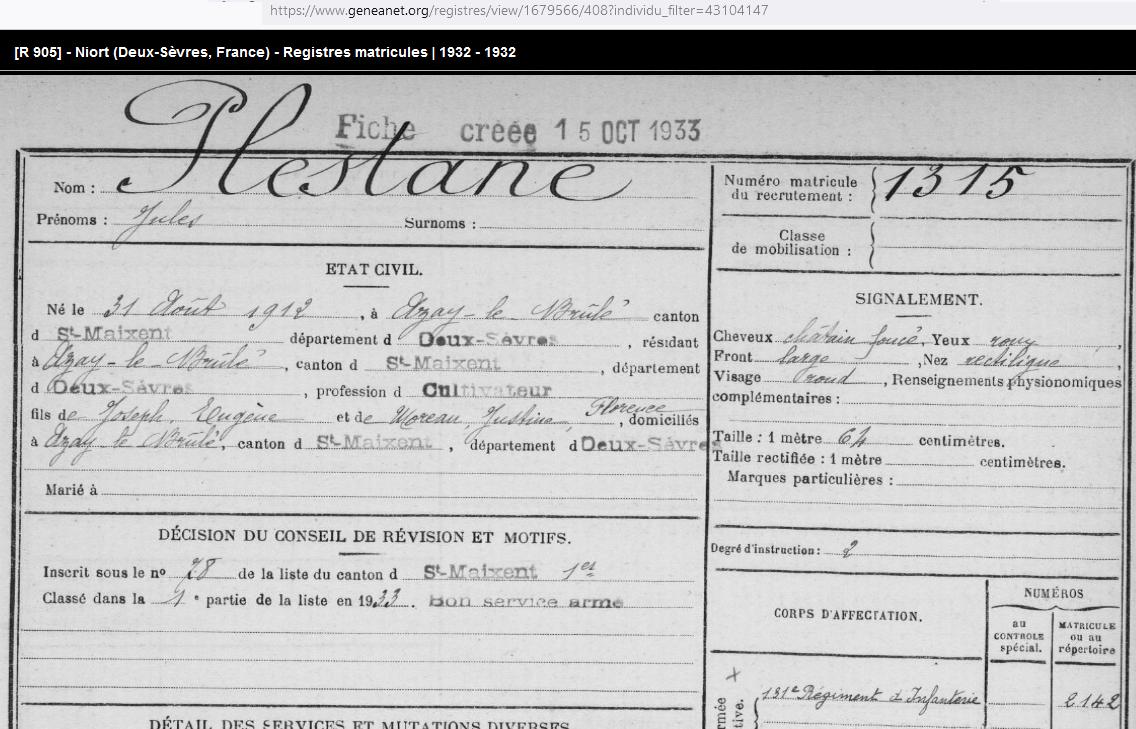 https://www.geneanet.org/registres/view/1679566/408?individu_filter=43104147
[R 905] - Niort (Deux-Sèvres, France) - Registres matricules | 1932 - 1932
Fiche créée 15 OCT 1933
Nom : Plestane
Prénoms : Jules Surnoms :
Numéro matricule du recrutement : 1315
Classe de mobilisation :
ETAT CIVIL.
Né le 31 Août 1912, à Azay-le Brûlé canton
d St-Maixent département d Deux-Sèvres, résidant
à Azay-le Brûlé, canton d St-Maixent, département
d Deux-Sèvres, profession d Cultivateur
fils de Joseph, Eugène et de Moreau, Justine, Florence, domiciliés
à Azay le Brûlé, canton d St-Maixent, département d Deux-Sèvres
Marié à
SIGNALEMENT.
Cheveux châtain foncé, Yeux
Front large, Nez rectiligne
Visage rond, Renseignements physionomiques
complémentaires :
Taille : 1 mètre 64 centimètres.
Taille rectifiée : 1 mètre centimètres.
Marques particulières :
Degré d'instruction : 2
DÉCISION DU CONSEIL DE RÉVISION ET MOTIFS.
Inscrit sous le nº 78 de la liste du canton d St-Maixent 1er
Classé dans la 1e partie de la liste en 1933. Bon service armé
CORPS D'AFFECTATION.
NUMÉROS
au CONTROLE spécial.
MATRICULE ou au répertoire
131e Régiment d'Infanterie 2142
DÉTAIL DES SERVICES ET MUTATIONS DIVERSES